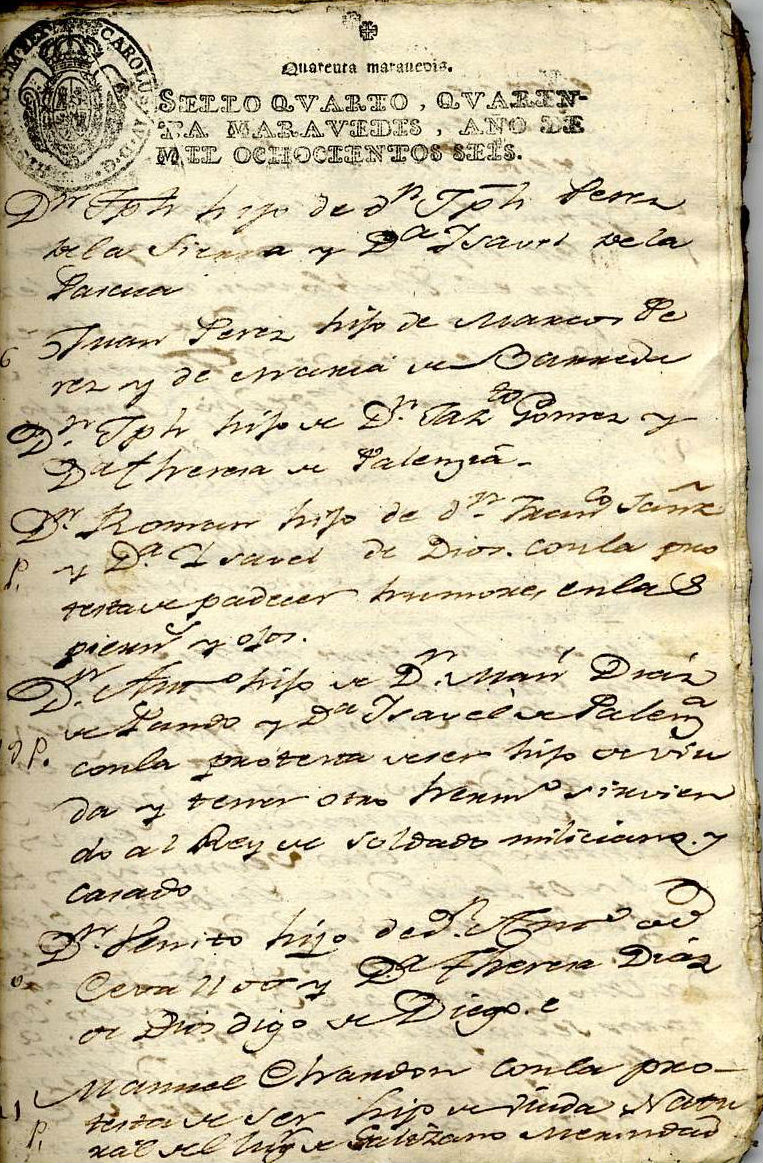 Quarenta maravedis.
SELLO QVARTO, QVAREN-
TA MARAVEDIS, AÑO DE
MIL OCHOCIENTOS SEIS.
CAROLUS IV D G
Dn Jph hijo de dn Jph Perez
de la Sierra y Da Isavel de la
Pascua
Juan Perez hijo de Marcos Pe
rez y de Maria de
Dn. Jph hijo de Dn. Gomez y
Da Theresa de Palenzia
Dn. Roman hijo de dn Franco Sanz
P. y Da. Isavel de Dios. con la pro
testa de padecer humores en la
piernas y ojos.
Dn. Anto hijo de Dn. Diaz
de Pando y Da Isavel de Palenza
P. con la protesta de ser hijo de viu
da y tener otro hermo sirvien
do al Rey de soldado miliciano y
casado
Dn. Benito hijo de Dn. Anto de
Cevallos y Da Theresa Diaz
de Dios digo de Diego. e
Manuel Chandon con la pro-
testa de ser hijo de viuda Natu
P. ral del lugr de Galizano Merindad